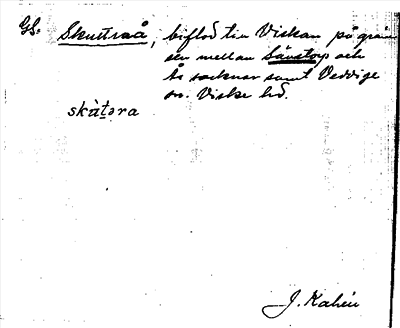 Gs. Skuttraå, biflod till Viskan på grän
sen mellan Sävstorp och
Ås socknar samt Veddige
sn. Viske hd.
skàt̲əra
J. Kalén